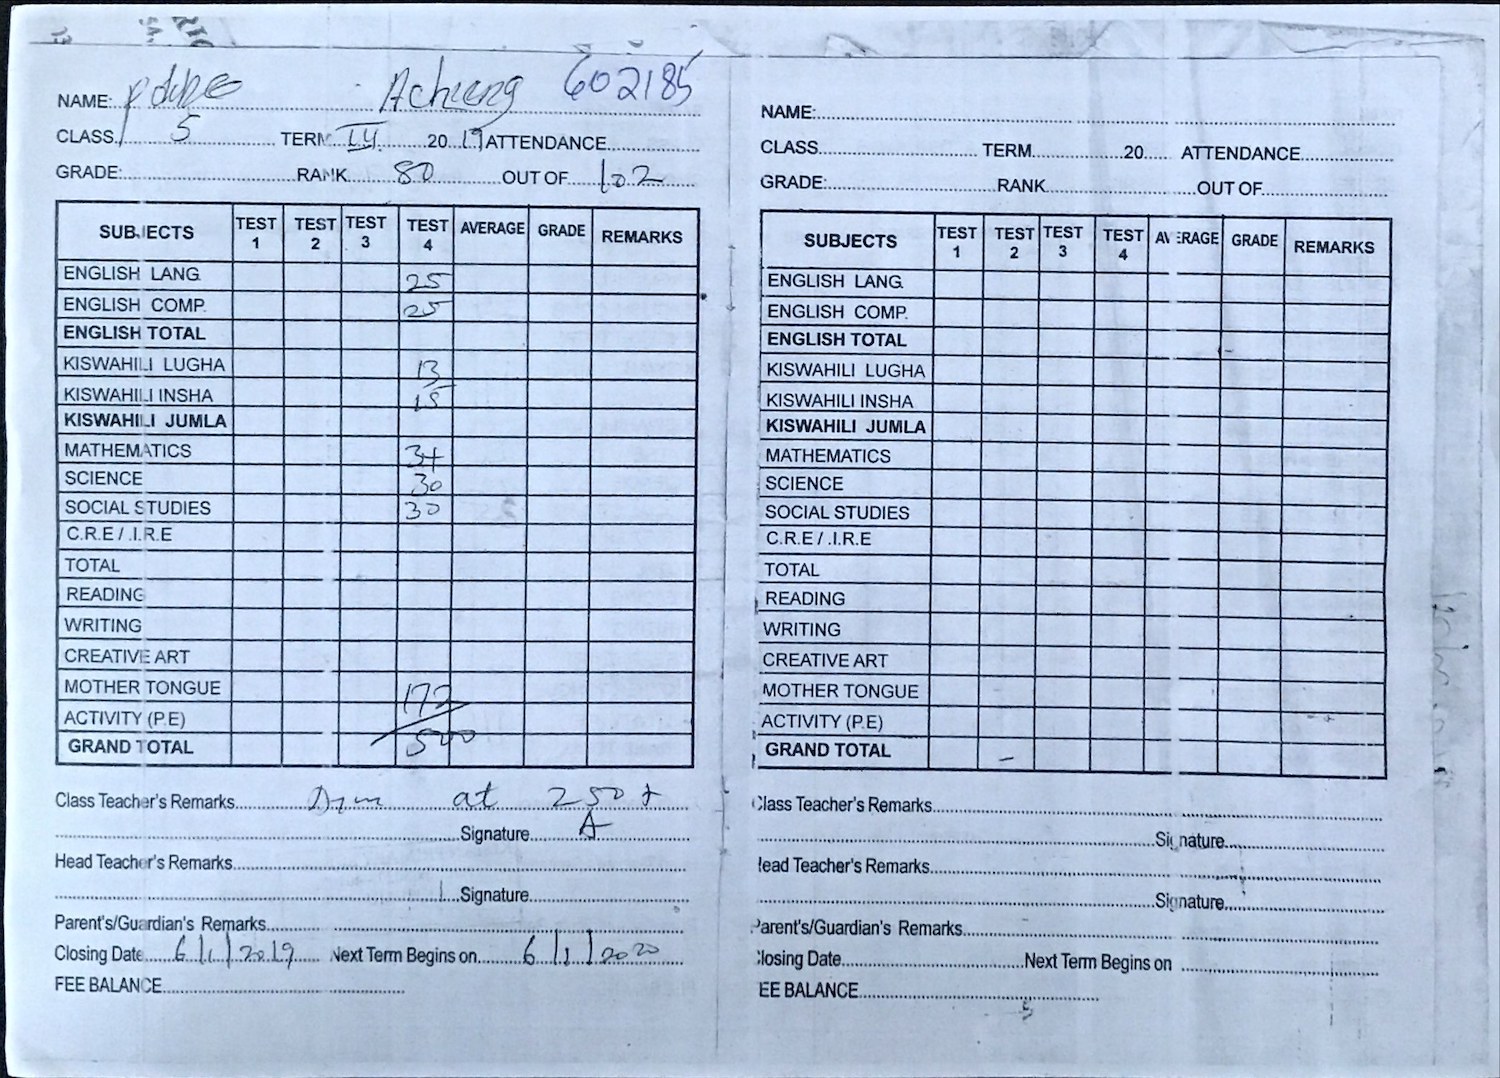 NAME: Achieng 602185
CLASS 5 TERM 2019 ATTENDANCE
GRADE: RANK 80 OUT OF 102
SUBJECTS TEST 1 TEST 2 TEST 3 TEST 4 AVERAGE GRADE REMARKS
ENGLISH LANG. 25
ENGLISH COMP. 25
ENGLISH TOTAL
KISWAHILI LUGHA 13
KISWAHILI INSHA 15
KISWAHILI JUMLA
MATHEMATICS 34
SCIENCE 30
SOCIAL STUDIES 30
C.R.E / .I.R.E
TOTAL
READING
WRITING
CREATIVE ART
MOTHER TONGUE 172
ACTIVITY (P.E)
GRAND TOTAL 500
Class Teacher's Remarks at 250 +
Signature A
Head Teacher's Remarks
Signature
Parent's/Guardian's Remarks
Closing Date 6/1/2019 Next Term Begins on 6/1/2020
FEE BALANCE
NAME:
CLASS TERM 20 ATTENDANCE
GRADE: RANK OUT OF
SUBJECTS TEST 1 TEST 2 TEST 3 TEST 4 AVERAGE GRADE REMARKS
ENGLISH LANG.
ENGLISH COMP.
ENGLISH TOTAL
KISWAHILI LUGHA
KISWAHILI INSHA
KISWAHILI JUMLA
MATHEMATICS
SCIENCE
SOCIAL STUDIES
C.R.E / .I.R.E
TOTAL
READING
WRITING
CREATIVE ART
MOTHER TONGUE
ACTIVITY (P.E)
GRAND TOTAL
Class Teacher's Remarks
Signature
Head Teacher's Remarks
Signature
Parent's/Guardian's Remarks
Closing Date Next Term Begins on
FEE BALANCE